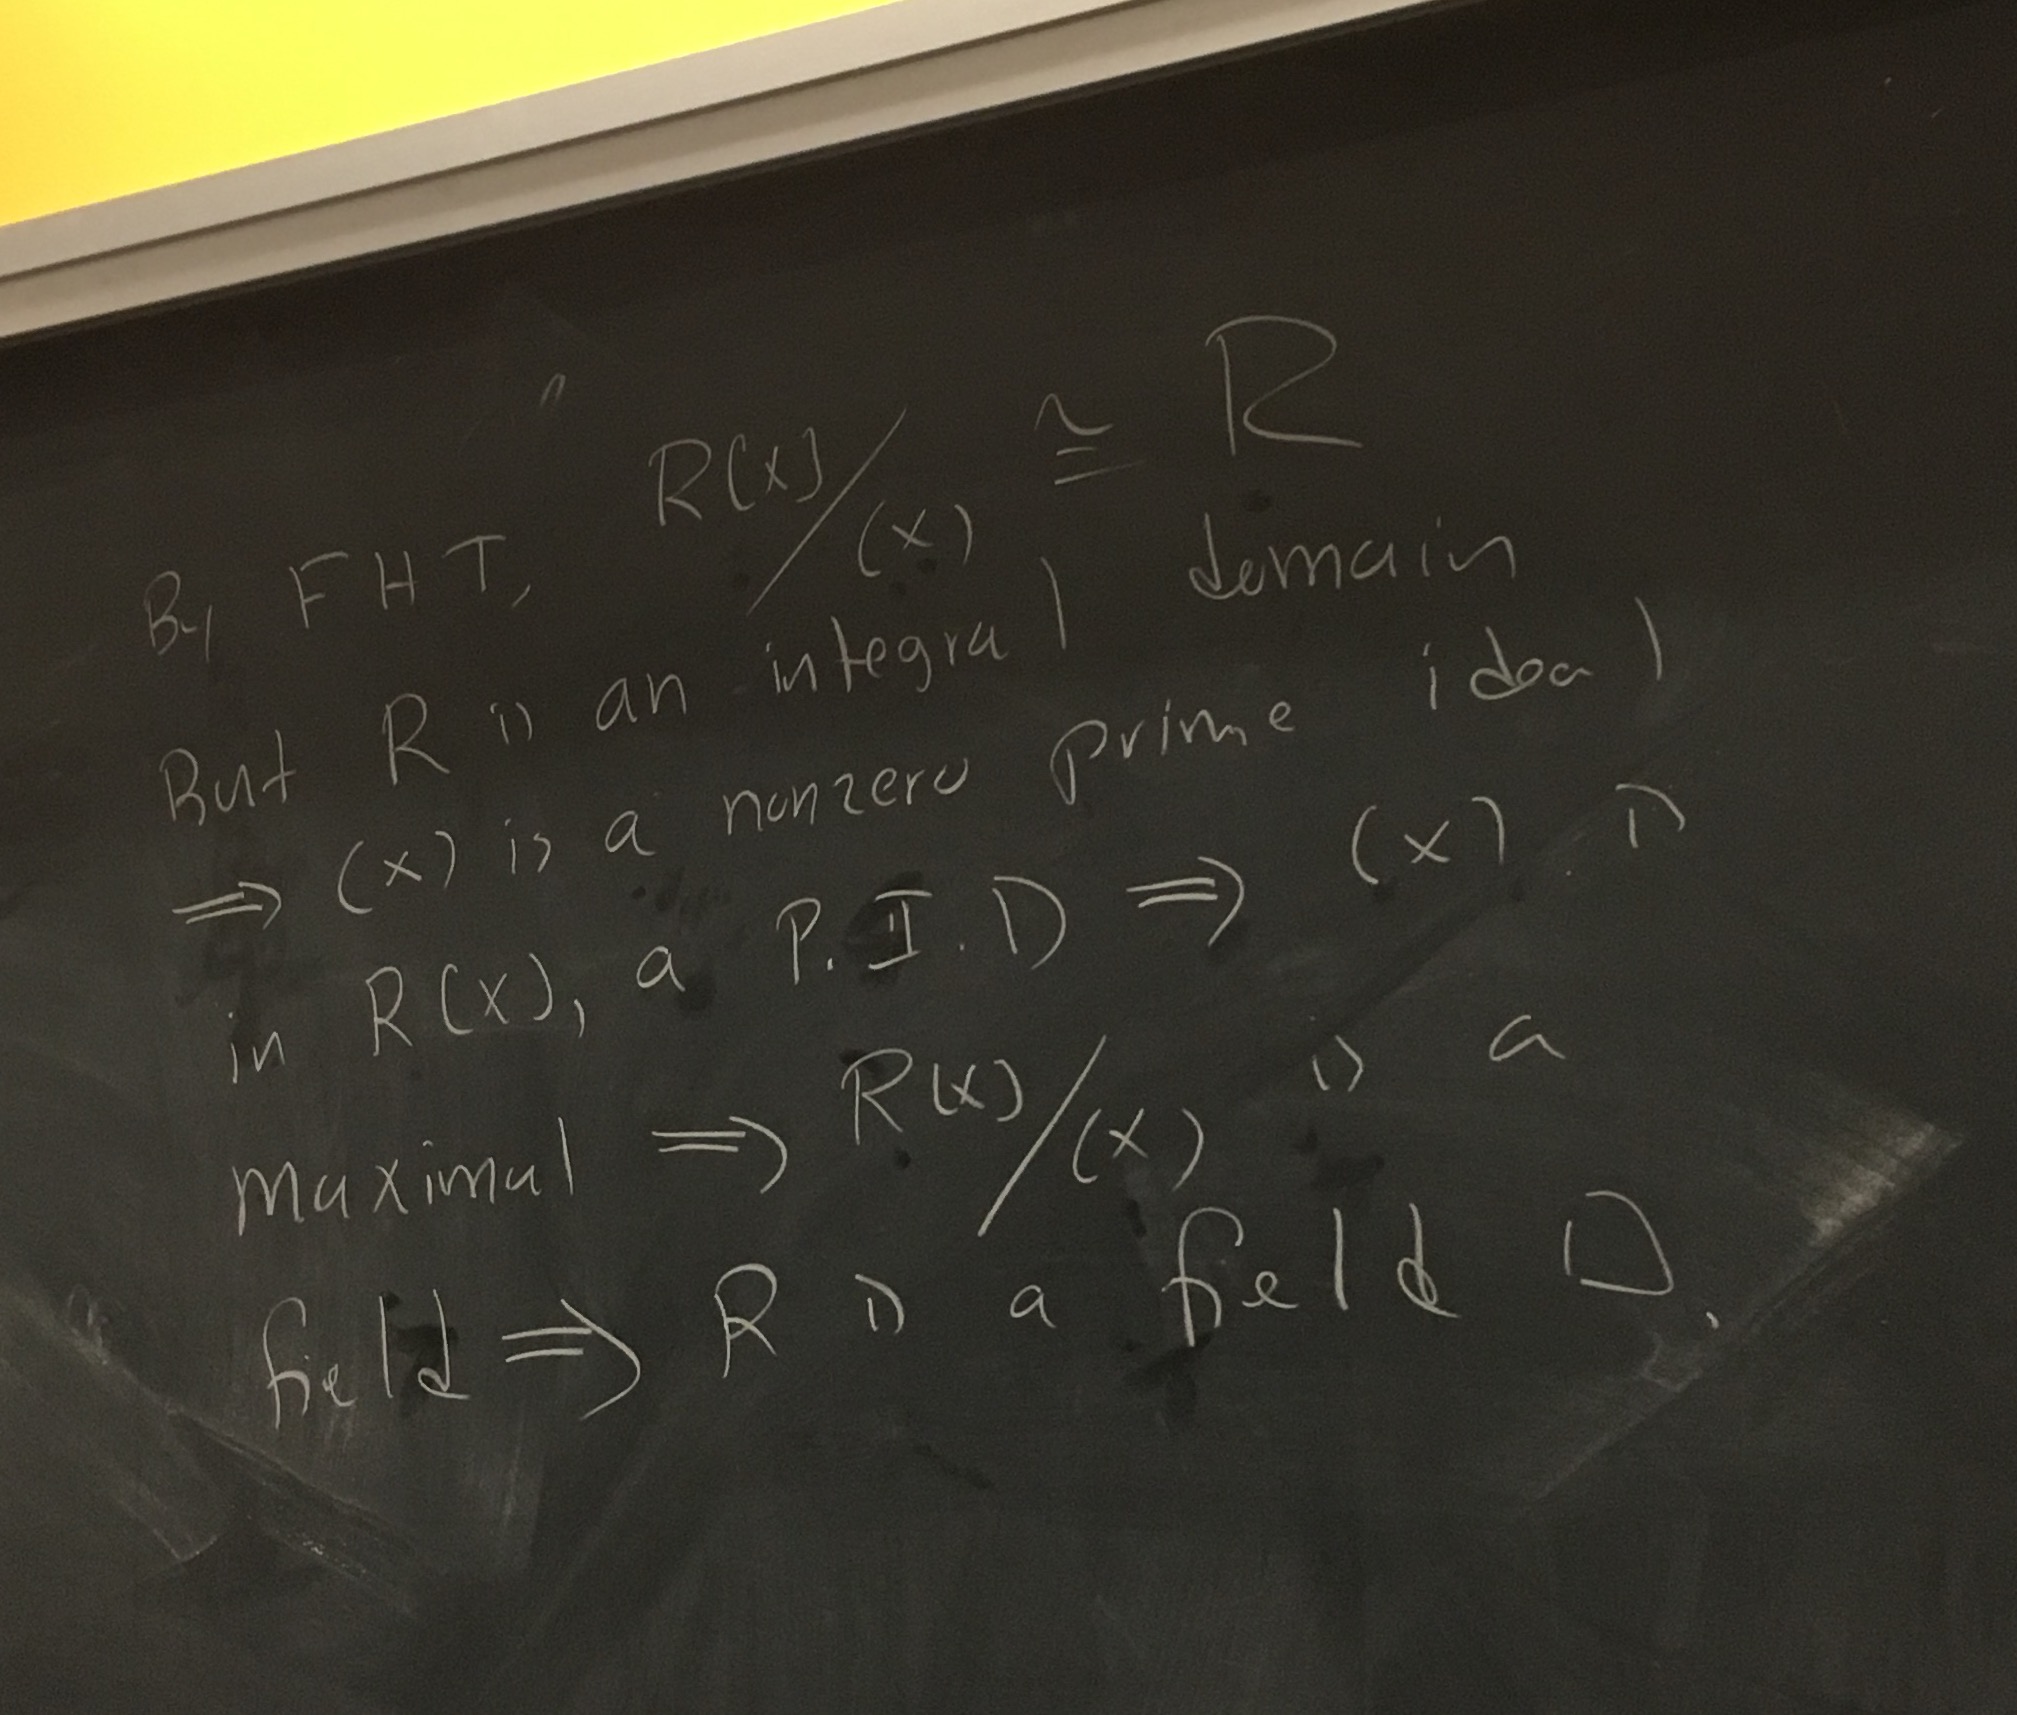 By FHT, R[x]/(x) ≅ R
But R is an integral domain
⇒ (x) is a nonzero prime ideal
in R[x], a P.I.D ⇒ (x) is
maximal ⇒ R[x]/(x) is a
field ⇒ R is a field □.